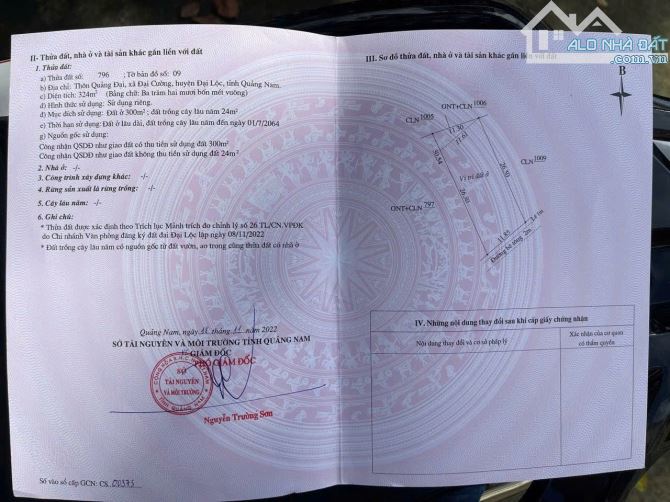 II- Thửa đất, nhà ở và tài sản khác gắn liền với đất
1. Thửa đất:
a) Thửa đất số: 796 ; Tờ bản đồ số: 09
b) Địa chỉ: Thôn Quảng Đại, xã Đại Cường, huyện Đại Lộc, tỉnh Quảng Nam.
c) Diện tích: 324m² (Bằng chữ: Ba trăm hai mươi bốn mét vuông)
d) Hình thức sử dụng: Sử dụng riêng.
đ) Mục đích sử dụng: Đất ở 300m² ; đất trồng cây lâu năm 24m²
e) Thời hạn sử dụng: Đất ở lâu dài, đất trồng cây lâu năm đến ngày 01/7/2064
g) Nguồn gốc sử dụng:
Công nhận QSDĐ như giao đất có thu tiền sử dụng đất 300m²
Công nhận QSDĐ như giao đất không thu tiền sử dụng đất 24m²
2. Nhà ở: -/-
3. Công trình xây dựng khác: -/-
4. Rừng sản xuất là rừng trồng: -/-
5. Cây lâu năm: -/-
6. Ghi chú:
* Thửa đất được xác định theo Trích lục Mảnh trích đo chính lý số 26 TL/CN.VPĐK
do Chi nhánh Văn phòng đăng ký đất đai Đại Lộc lập ngày 08/11/2022
* Đất trồng cây lâu năm có nguồn gốc từ đất vườn, ao trong cùng thửa đất có nhà ở
Quảng Nam, ngày 16 tháng 11 năm 2022
SỞ TÀI NGUYÊN VÀ MÔI TRƯỜNG TỈNH QUẢNG NAM
GIÁM ĐỐC
PHÓ GIÁM ĐỐC
SỞ
TÀI NGUYÊN
VÀ MÔI TRƯỜNG
TỈNH QUẢNG NAM
Nguyễn Trường Sơn
Số vào sổ cấp GCN: CS 00375
ALO NHÀ ĐẤT
.com.vn
III. Sơ đồ thửa đất, nhà ở và tài sản khác gắn liền với đất
B
ONT+CLN 1006
CLN 1005
11.30
11.61
30.54
CLN 1009
Vị trí đất ở
26.50
26.30
ONT+CLN 797
3.41m
11.85
Đường bê tông 2m
IV. Những nội dung thay đổi sau khi cấp giấy chứng nhận
Nội dung thay đổi và cơ sở pháp lý
Xác nhận của cơ quan
có thẩm quyền